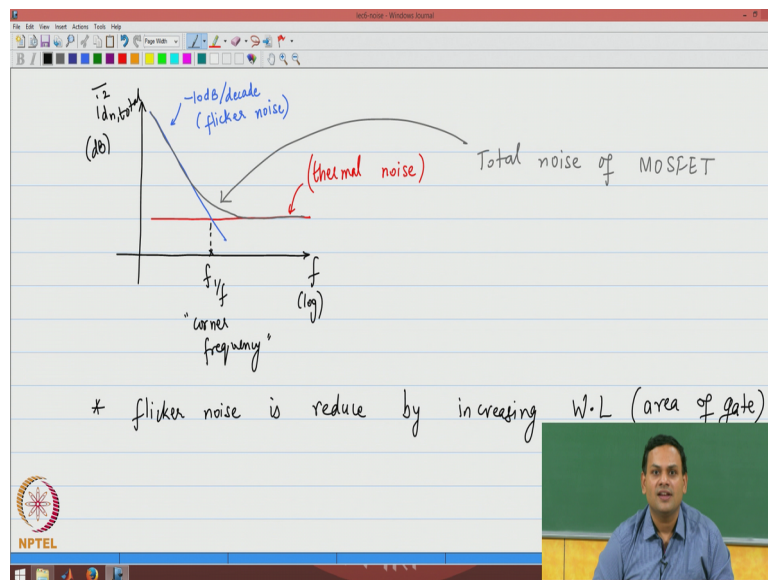 lec6-noise - Windows Journal
File Edit View Insert Actions Tools Help
Page Width
B I
i²dn,total
(dB)
-10dB/decade
(flicker noise)
(thermal noise)
Total noise of MOSFET
f1/f
f
(log)
"corner
frequency"
* flicker noise is reduce by increasing W.L (area of gate)
NPTEL